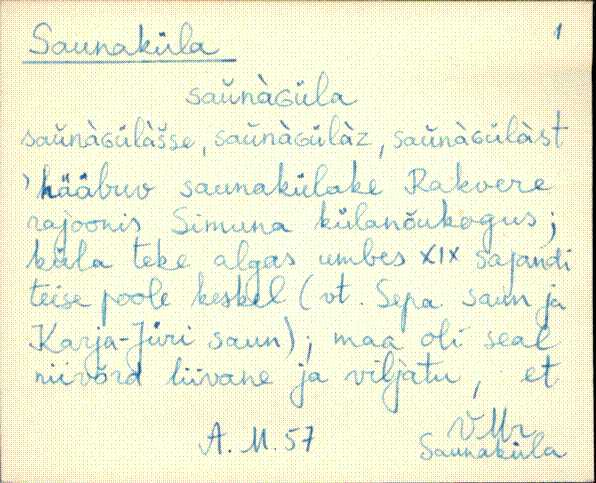 Saunaküla 1
saŭnàGüla
saŭnàGülàšse, saŭnàGülàz, saŭnàGülàst
'hääbuv saunakülake Rakvere
rajoonis Simuna külanõukogus;
küla teke algas umbes XIX sajandi
teise poole keskel (vt. Sepa saun ja
Karja-Jüri saun); maa oli seal
niivõrd liivane ja viljatu, et
A.M.57 VMr
Saunaküla